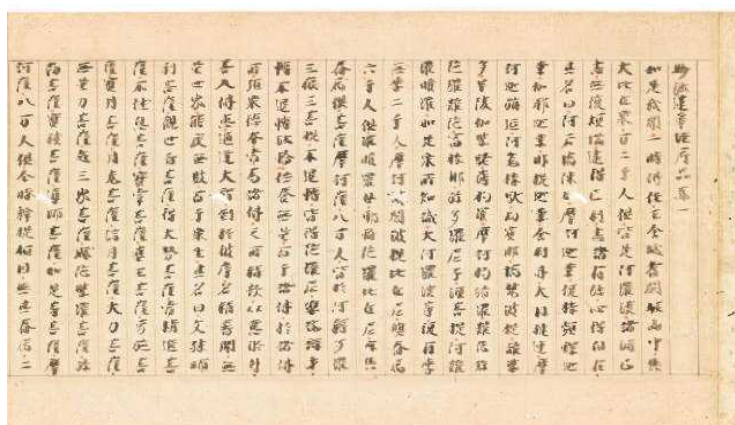 妙法蓮華經序品第一
如是我聞一時佛住王舍城耆闍崛山中與
大比丘眾万二千人俱皆是阿羅漢諸漏已
盡無復煩惱逮得己利盡諸有結心得自在
其名曰阿若憍陳如摩訶迦葉優樓頻螺迦
葉伽耶迦葉那提迦葉舍利弗大目揵連摩
訶迦旃延阿㝹樓馱劫賓那憍梵波提離婆
多畢陵伽婆蹉薄拘羅摩訶拘絺羅難陀孫
陀羅難陀富樓那彌多羅尼子須菩提阿難
羅睺羅如是眾所知識大阿羅漢等復有學
無學二千人摩訶波闍波提比丘尼與眷屬
六千人俱羅睺羅母耶輸陀羅比丘尼亦與
眷屬俱菩薩摩訶薩八万人皆於阿耨多羅
三藐三菩提不退轉皆得陀羅尼樂說辯才
轉不退轉法輪供養無量百千諸佛於諸佛
所殖眾德本常為諸佛之所稱歎以慈修身
善入佛慧通達大智到於彼岸名稱普聞無
量世界能度無數百千眾生其名曰文殊師
利菩薩觀世音菩薩得大勢菩薩常精進菩
薩不休息菩薩寶掌菩薩藥王菩薩勇施菩
薩寶月菩薩月光菩薩滿月菩薩大力菩薩
無量力菩薩越三界菩薩跋陀婆羅菩薩彌
勒菩薩寶積菩薩導師菩薩如是等菩薩摩
訶薩八万人俱爾時釋提桓因與其眷屬二